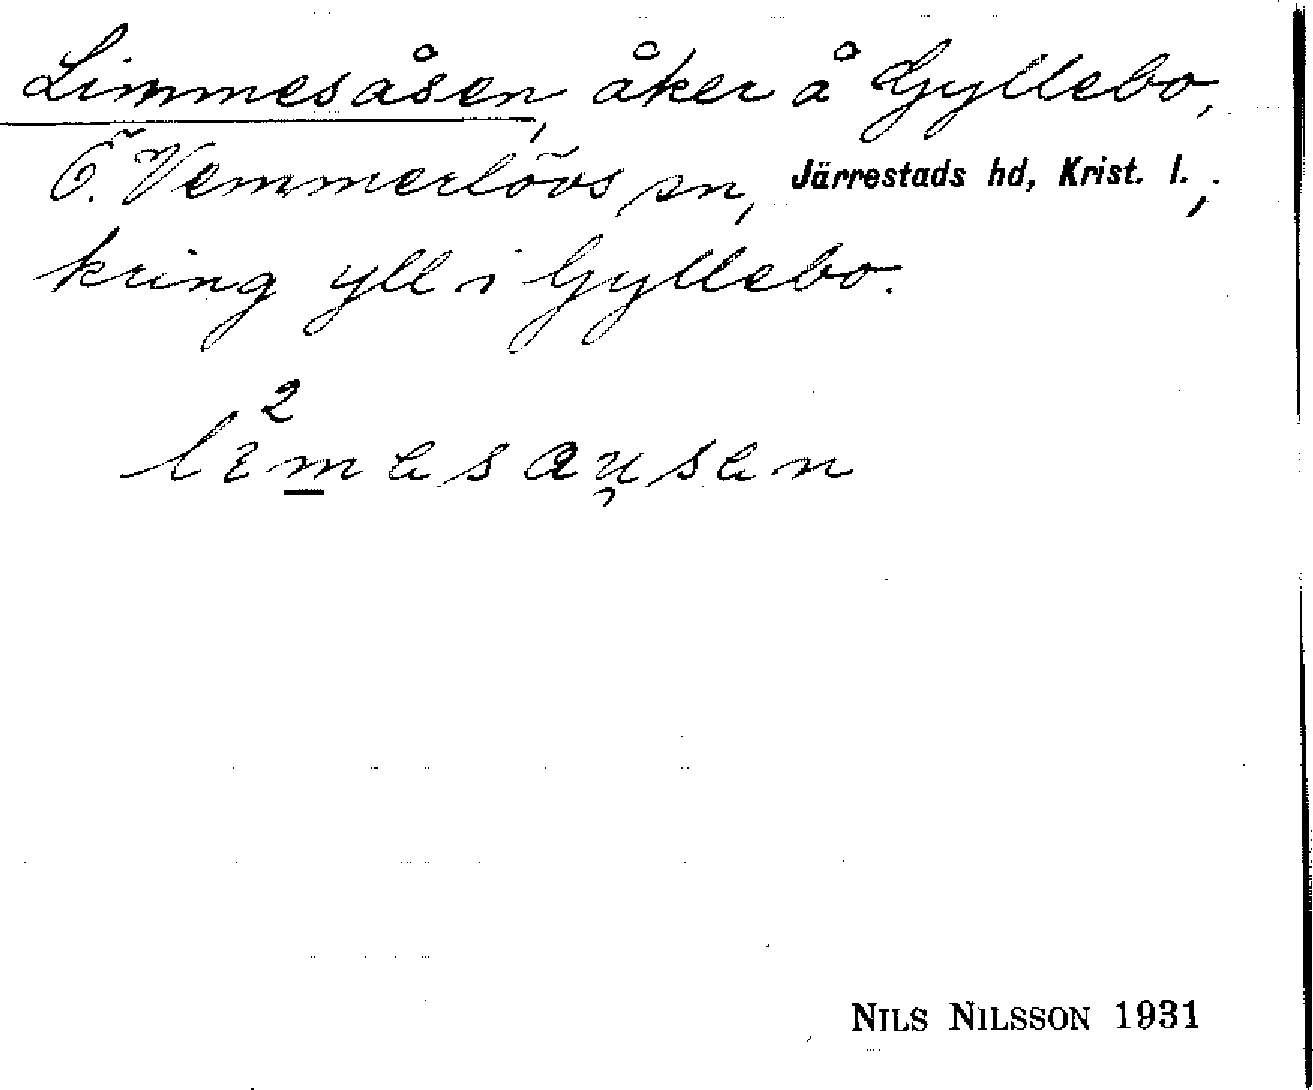 Limmesåsen, åker å Gyllebo,
Ö. Vemmerlövs sn, Järrestads hd, Krist. l.;
kring yll i Gyllebo.
2
limesausen
NILS NILSSON 1931